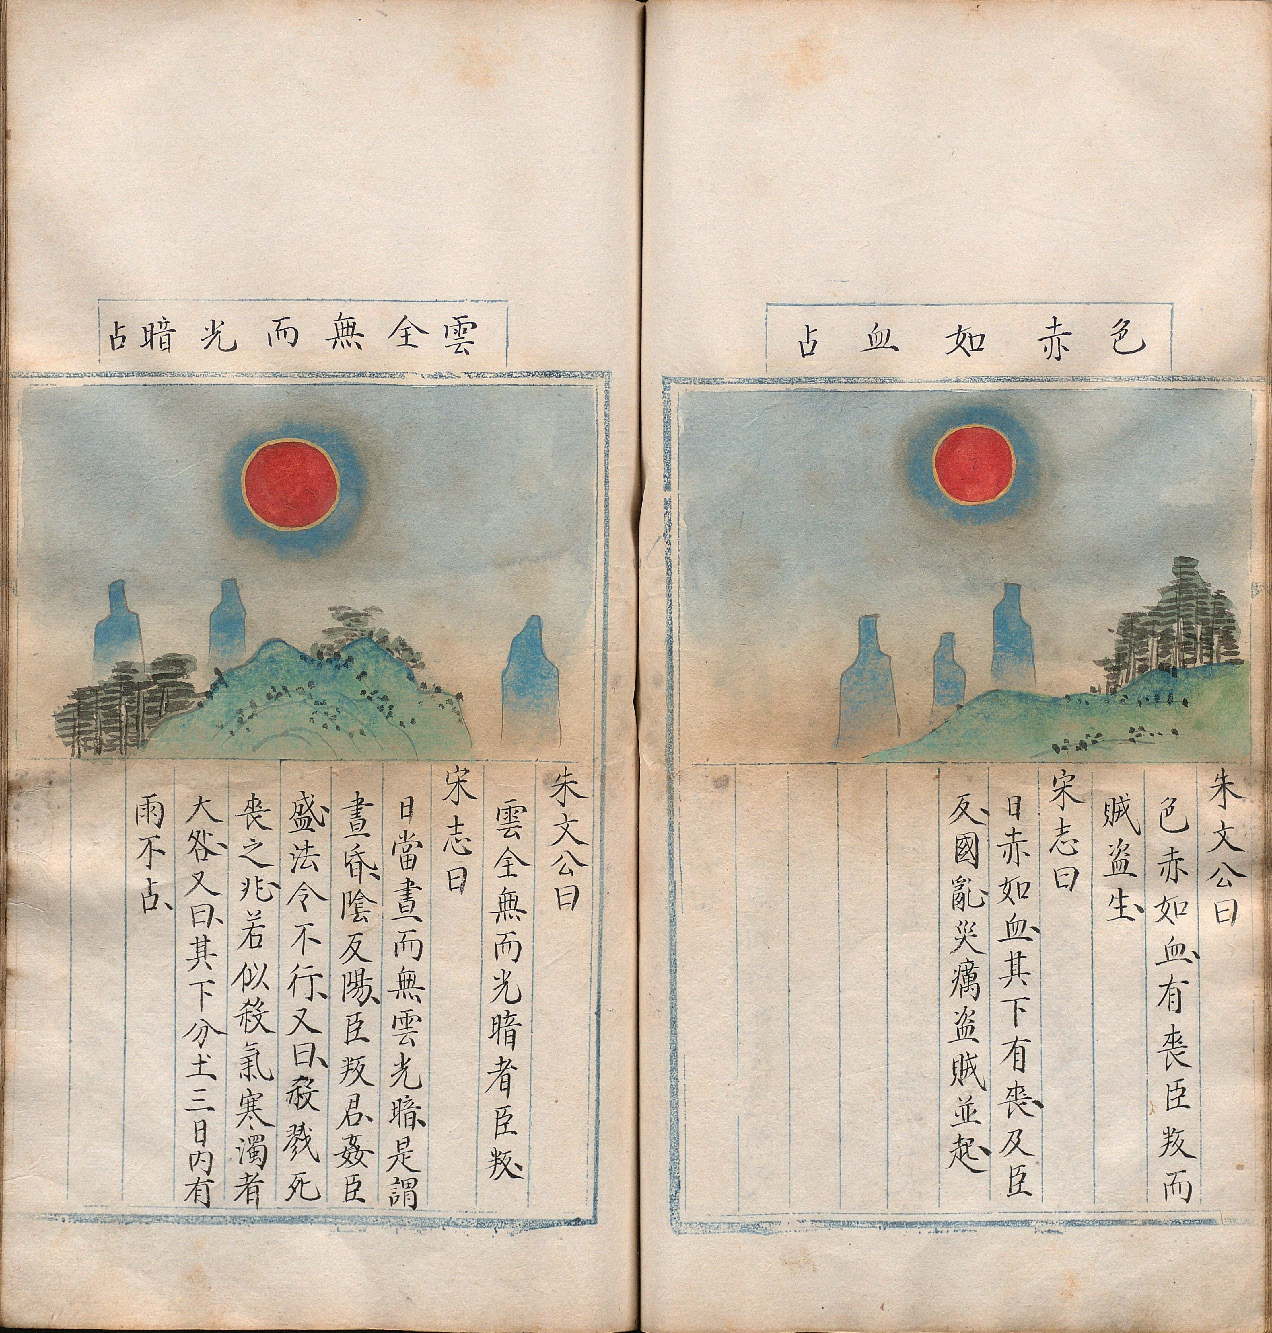 色赤如血占
朱文公曰
色赤如血有喪臣叛而
賊盗生
宋志曰
日赤如血其下有喪及臣
反國亂災癘盗賊並起
雲全無而光暗占
朱文公曰
雲全無而光暗者臣叛
宋志曰
日當晝而無雲光暗是謂
晝昏陰反陽臣叛君姦臣
盛法令不行又曰殺戮死
喪之兆若似殺氣寒濁者
大咎又曰其下分土三日内有
雨不占